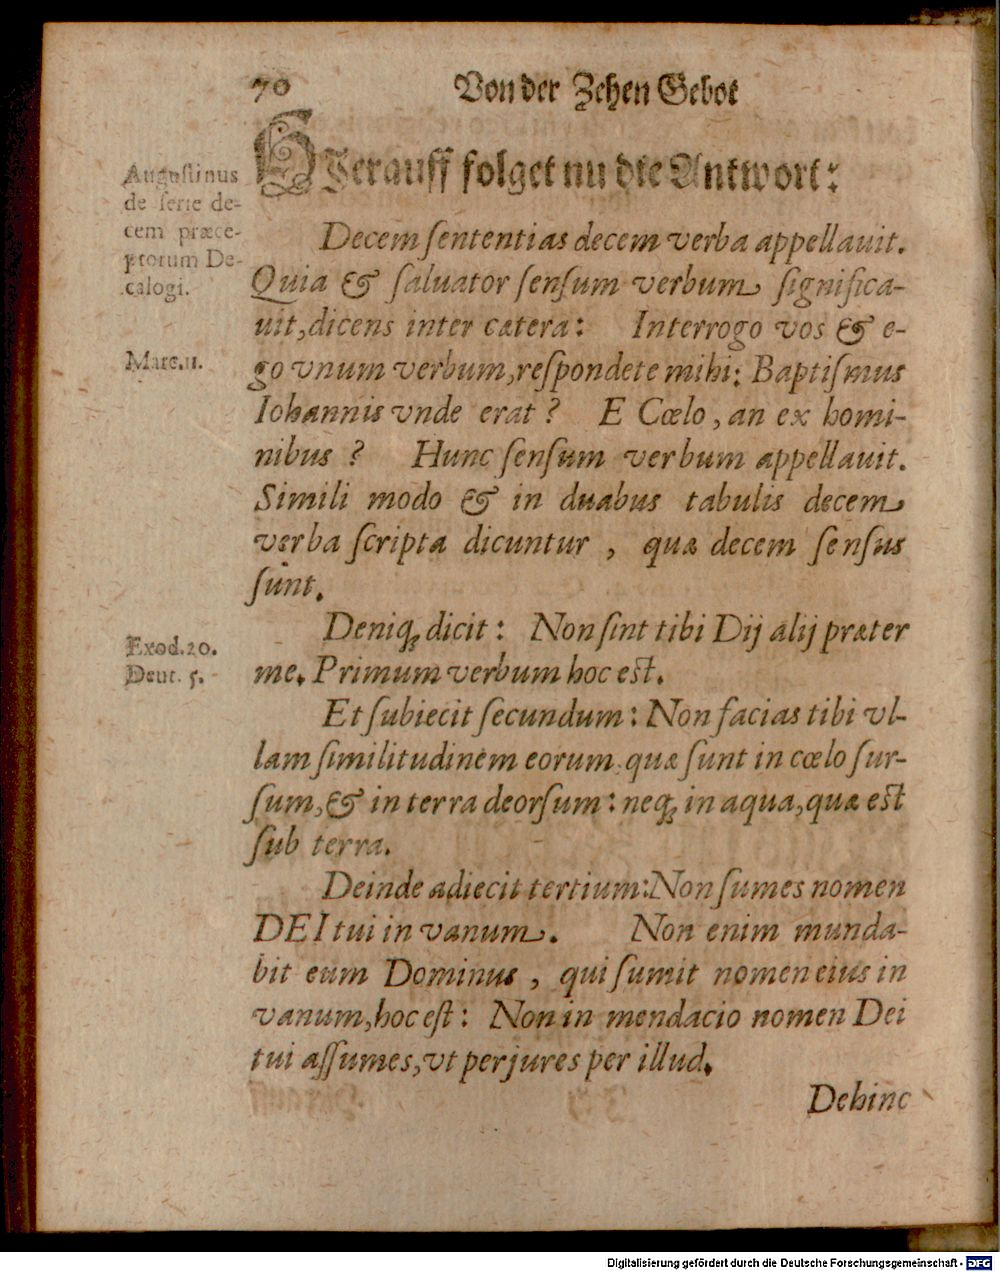 70 Von der Zehen Gebot
HIerauff folget nu die Antwort:
Augustinus
de serie de-
cem præce-
ptorum De-
calogi.
Decem ſententias decem verba appellauit.
Quia & ſaluator ſenſum verbum ſignifica-
uit, dicens inter cætera: Interrogo vos & e-
Marc. 11.
go vnum verbum, reſpondete mihi: Baptiſmus
Iohannis vnde erat? E Cœlo, an ex homi-
nibus? Hunc ſenſum verbum appellauit.
Simili modo & in duabus tabulis decem
verba ſcripta dicuntur, quæ decem ſenſus
ſunt.
Deniq; dicit: Non ſint tibi Dij alij præter
Exod. 20.
me. Primum verbum hoc eſt.
Deut. 5.
Et ſubiecit ſecundum: Non facias tibi vl-
lam ſimilitudinem eorum quæ ſunt in cœlo ſur-
ſum, & in terra deorſum: neq; in aqua, quæ eſt
ſub terra.
Deinde adiecit tertium: Non ſumes nomen
DEI tui in vanum. Non enim munda-
bit eum Dominus, qui ſumit nomen eius in
vanum, hoc eſt: Non in mendacio nomen Dei
tui aſſumes, vt perjures per illud.
Dehinc
Digitalisierung gefördert durch die Deutsche Forschungsgemeinschaft - DFG